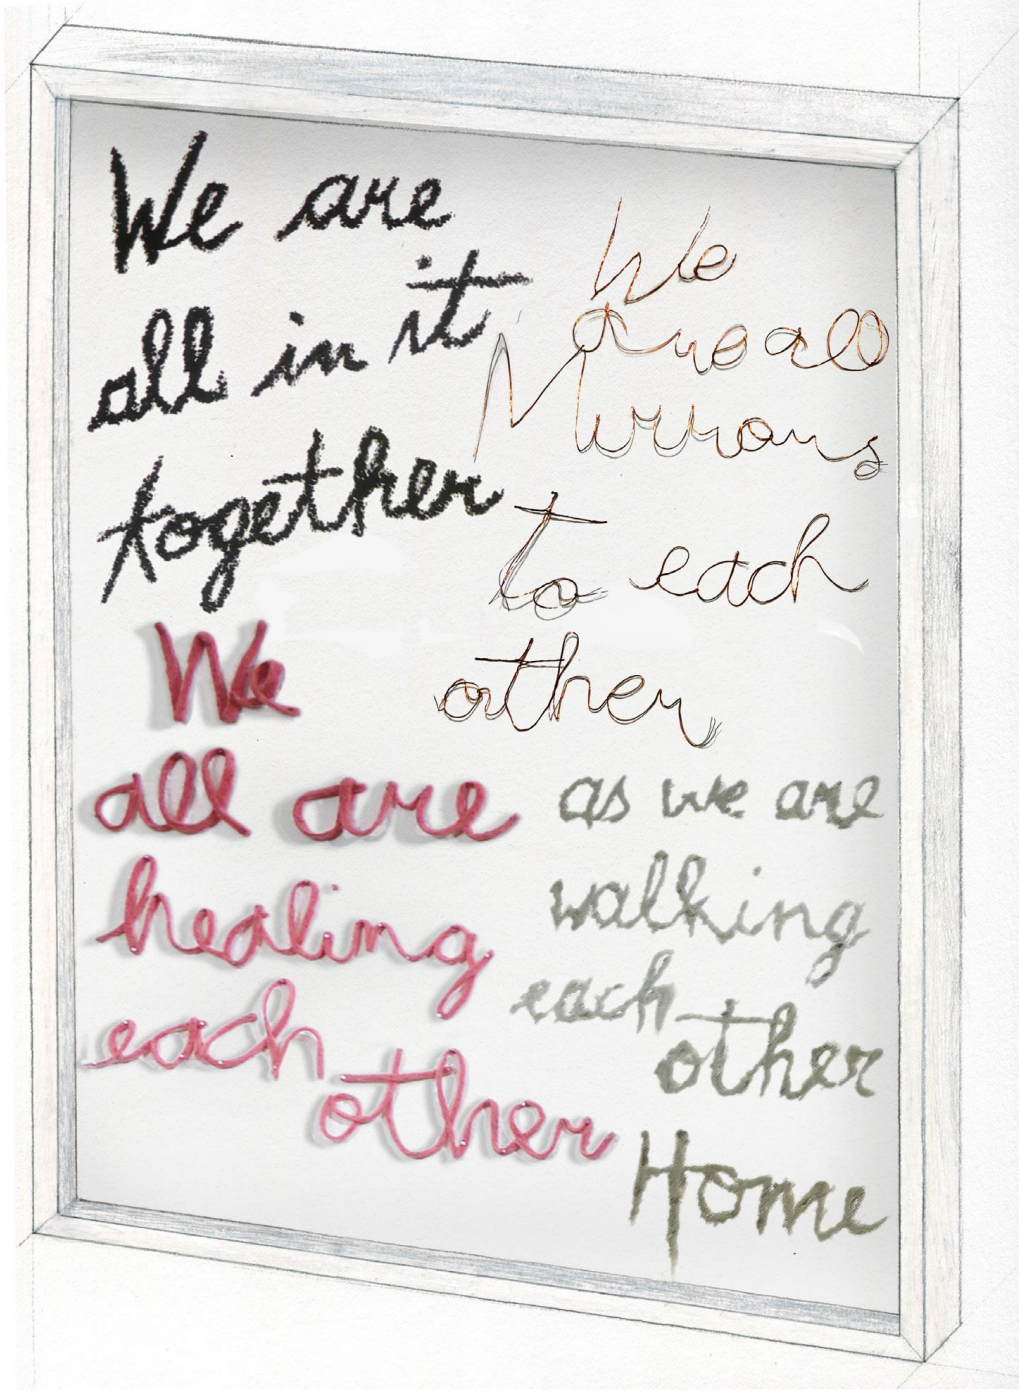 We are
all in it
together
We
are all
Mirrors
to each
other
We
all are
healing
each
other
as we are
walking
each
other
Home